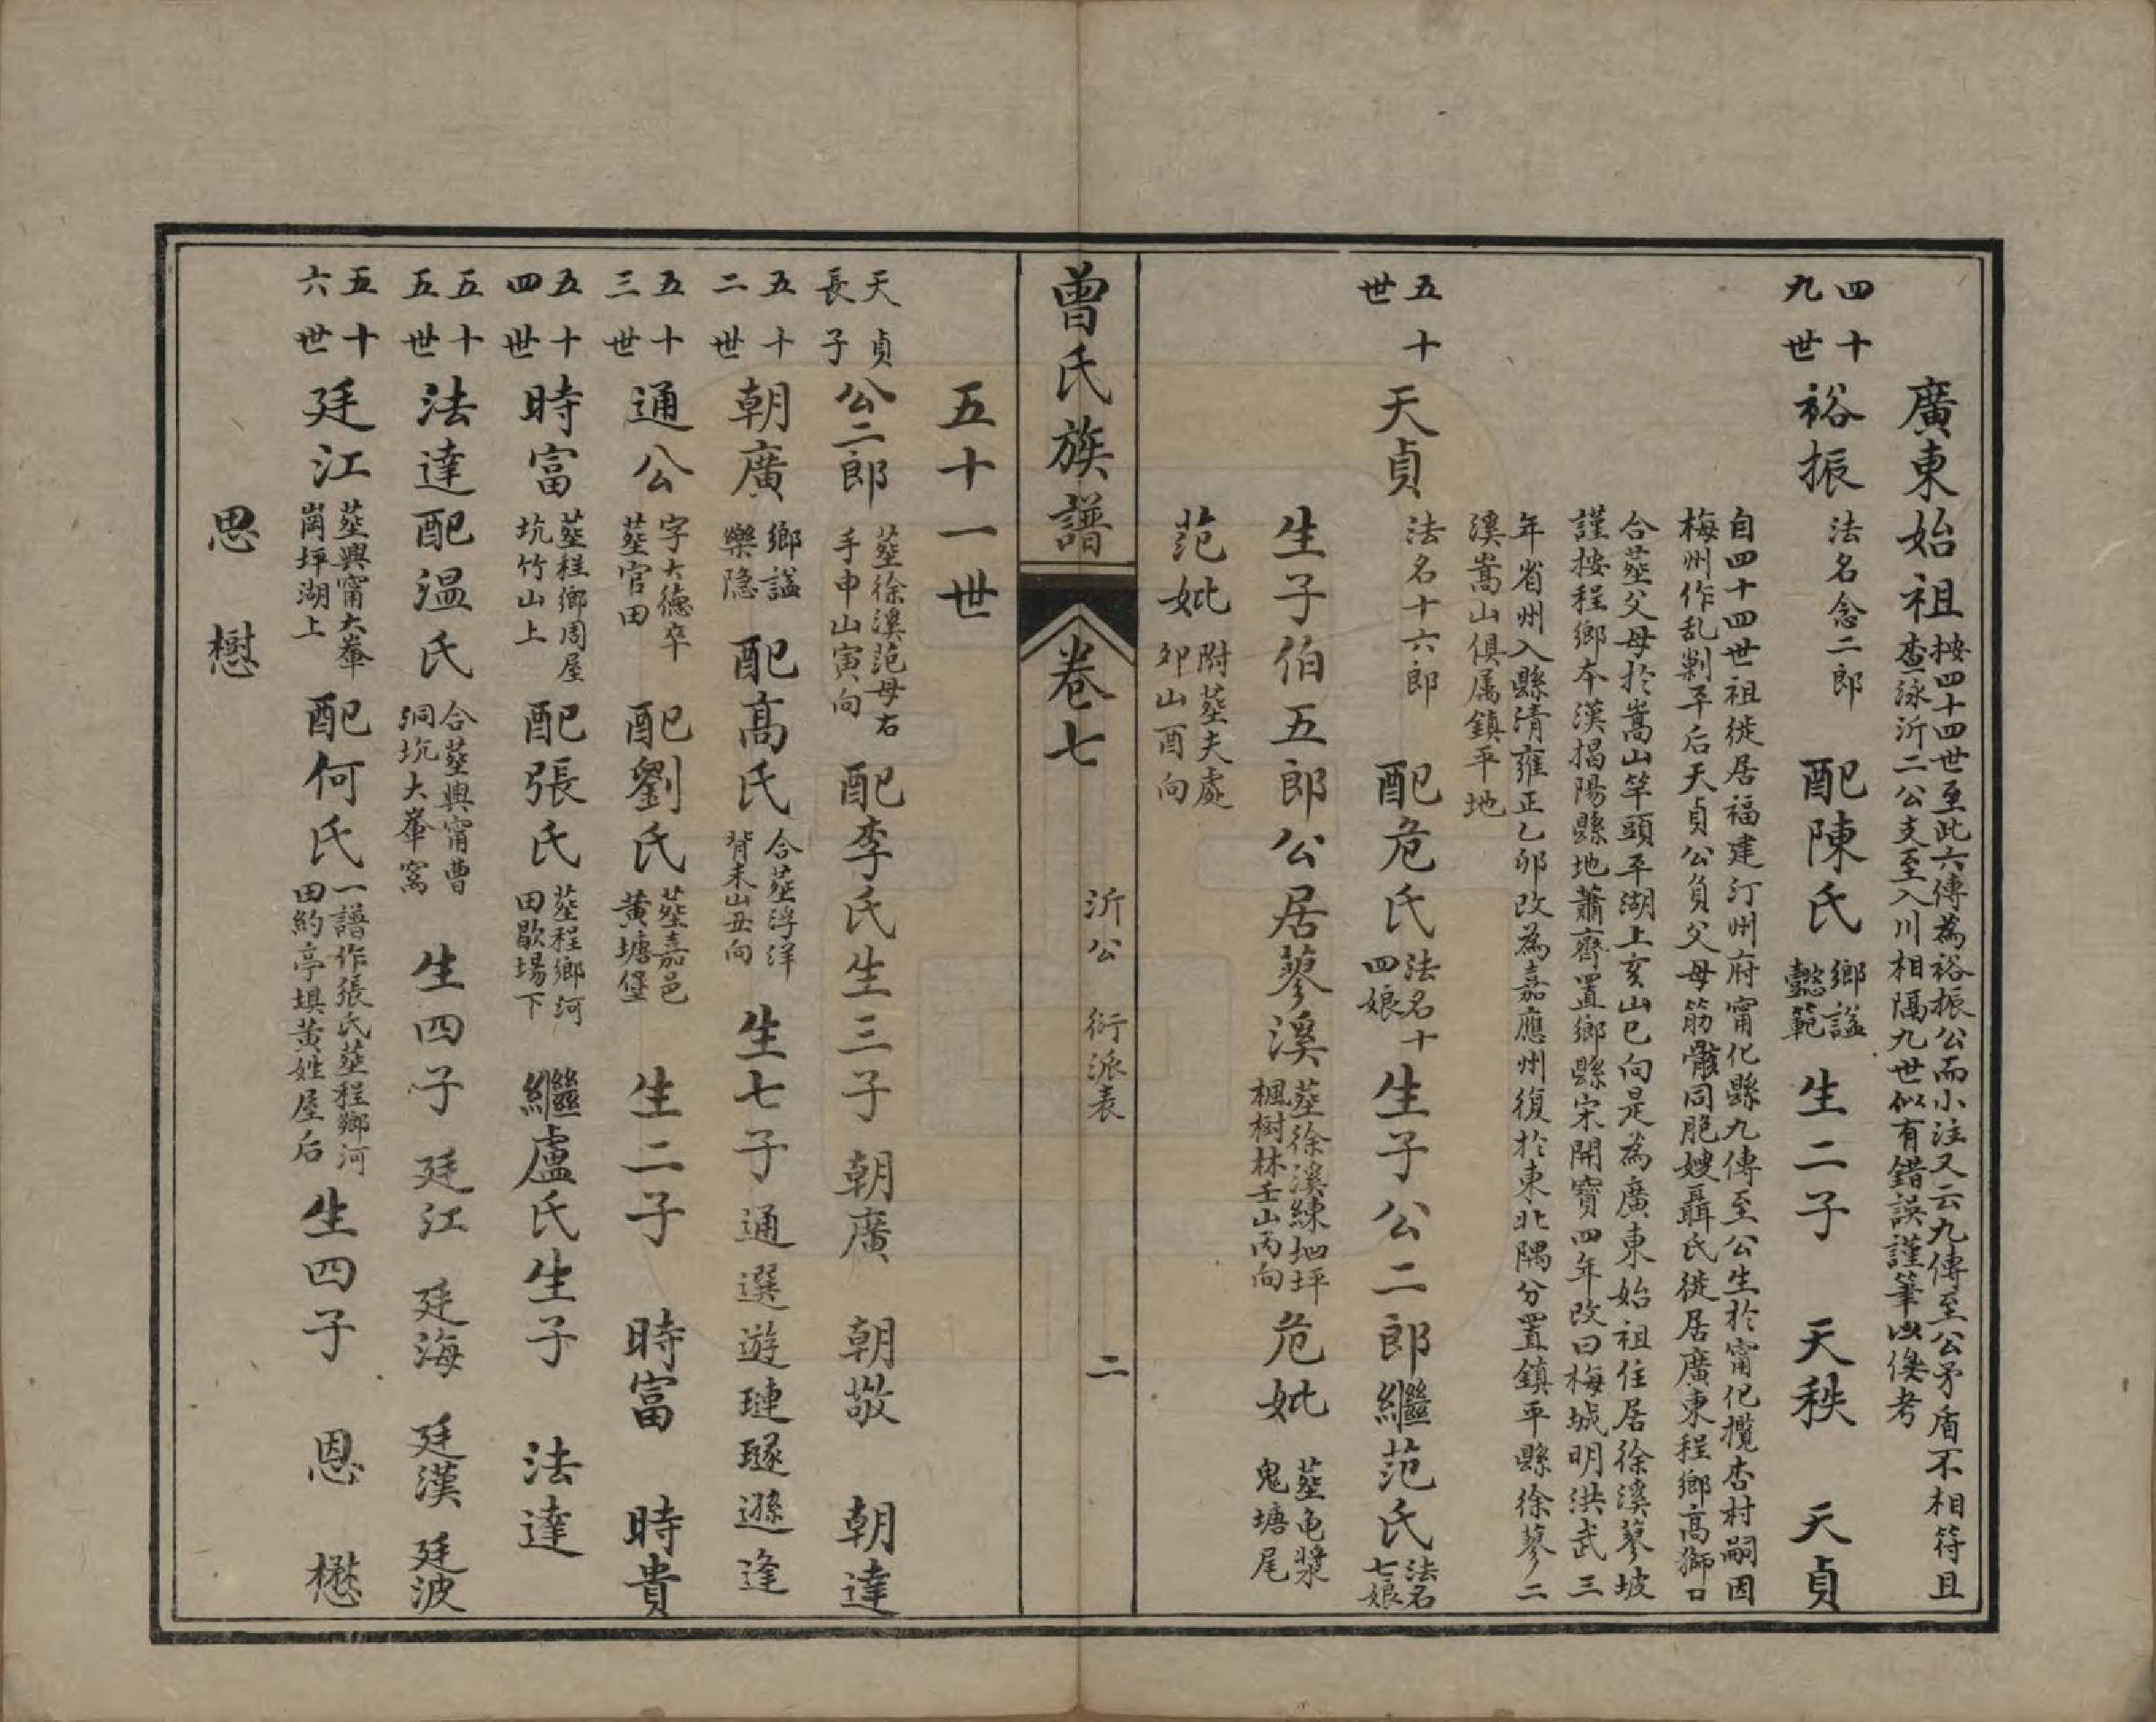 廣東始祖
按四十四世至此六傳為裕振公而小注又云九傳至公矛盾不相符且
查泳沂二公支至入川相隔九世似有錯誤謹筆以俟考
四十九世
裕振 法名念二郎 配陳氏 鄉謚懿範 生二子 天秩 天貞
自四十四世祖徙居福建汀州府甯化縣九傳至公生於甯化攬杏村嗣因
梅州作乱剿平后天貞公負父母筋骸同胞嫂聶氏徙居廣東程鄉高獅口
合塟父母於嵩山竿頭平湖上亥山巳向是為廣東始祖住居徐溪蓼坡
謹按程鄉本漢揭陽縣地蕭齊置鄉縣宋開寶四年改曰梅城明洪武三
年省州入縣清雍正乙卯改為嘉應州復於東北隅分置鎮平縣徐蓼二
溪嵩山俱属鎮平地
五十世
天貞 法名十六郎 配危氏 法名十四娘 生子公二郎繼范氏 法名七娘
生子伯五郎公居蓼溪 塟徐溪練地坪楓樹林壬山丙向 危妣 塟龟漿鬼塘尾
范妣 附塟夫處卯山酉向
曾氏族譜 卷七 沂公 衍派表 二
五十一世
天貞長子
公二郎 塟徐溪范母右手申山寅向 配李氏生三子 朝廣 朝敬 朝達
五十二世
朝廣 鄉謚樂隐 配高氏 合塟浮洋背未山丑向 生七子通選遊璉璲遜逢
五十三世
通公 字大德卒塟官田 配劉氏 塟嘉邑黄塘堡 生二子 時富 時貴
五十四世
時富 塟程鄉周屋坑竹山上 配張氏 塟程鄉河田歇場下 繼盧氏生子 法達
五十五世
法達配温氏 合塟興甯曹洞坑大輋窩 生四子 廷江 廷海 廷漢 廷波
五十六世
廷江 塟興甯大輋崗坪湖上 配何氏 一譜作張氏塟程鄉河田約亭埧黄姓屋后 生四子 恩 懋
思 樹